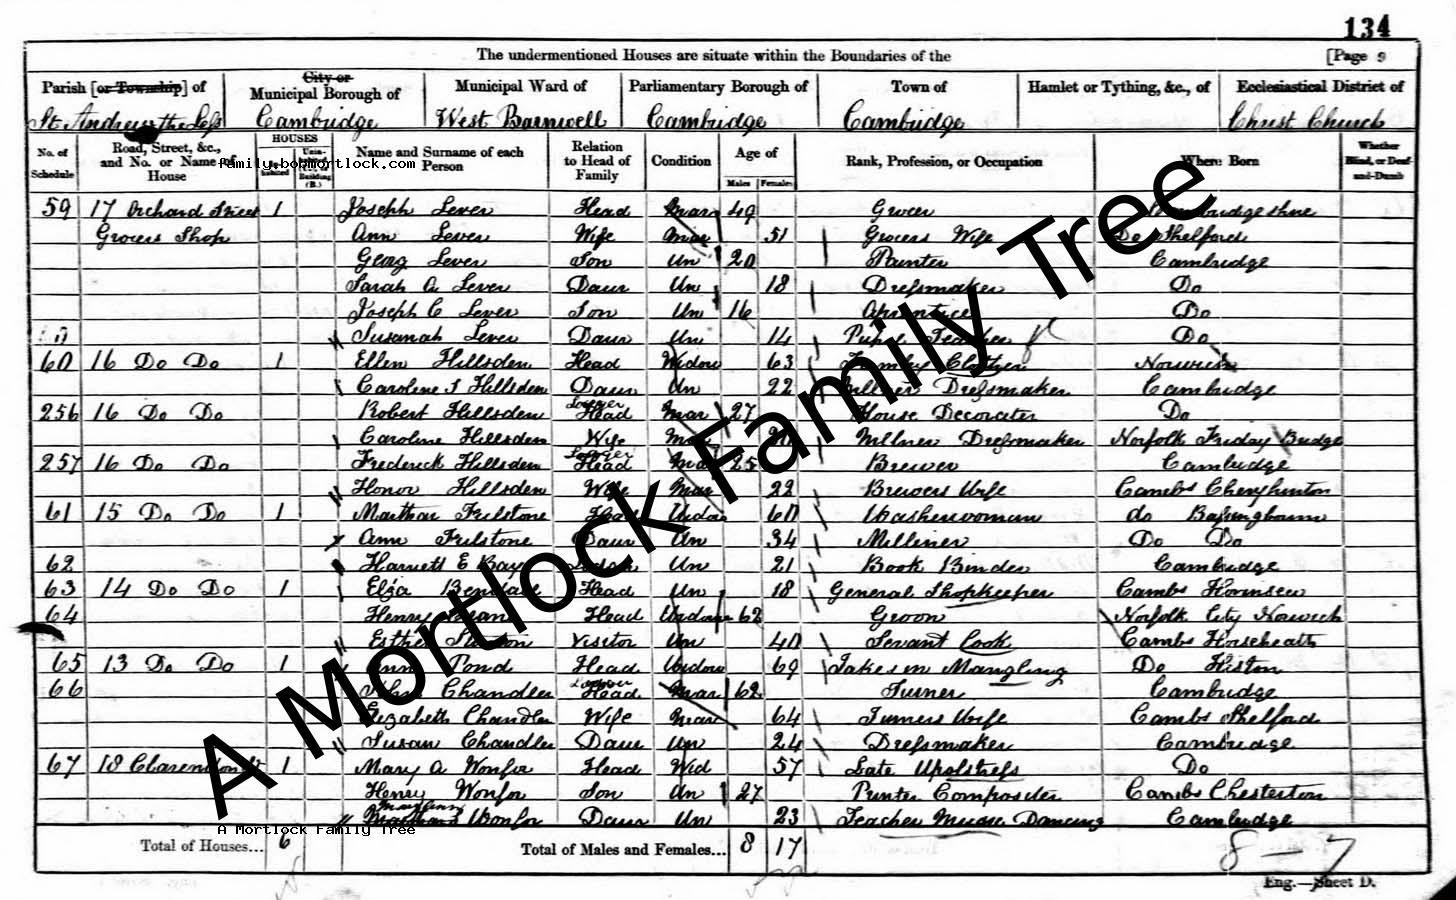 134
The undermentioned Houses are situate within the Boundaries of the
[Page 9
Parish [or Township] of
City or
Municipal Borough of
Municipal Ward of
Parliamentary Borough of
Town of
Hamlet or Tything, &c., of
Ecclesiastical District of
St. Andrew the Less
Cambridge
West Barnwell
Cambridge
Cambridge
Christ Church
No. of Schedule
Road, Street, &c., and No. or Name of House
HOUSES
Name and Surname of each Person
Relation to Head of Family
Condition
Age of
Males
Females
Rank, Profession, or Occupation
Where Born
Whether Blind, or Deaf-and-Dumb
family.bobmortlock.com
59 17 Orchard Street 1 Joseph Lever Head Mar 49 Grocer Cambridgeshire
Grocers Shop Ann Lever Wife Mar 51 Grocers Wife Do Shelford
Georg Lever Son Un 20 Painter Cambridge
Sarah A Lever Daur Un 18 Dressmaker Do
Joseph C Lever Son Un 16 Do
Susanah Lever Daur Un 14 Pupil Teacher Do
60 16 Do Do 1 Ellen Hillsden Head Widow 63 Norwich
Caroline S Hillsden Daur Un 22 Dressmaker Cambridge
256 16 Do Do Robert Hillsden Lodger Head Mar 27 House Decorater Do
Caroline Hillsden Wife Mar Millner Dressmaker Norfolk Friday Bridge
257 16 Do Do Frederick Hillsden Lodger Head Mar 25 Brewer Cambridge
Honor Hillsden Wife Mar 22 Brewers Wife Cambs Cheryhinton
61 15 Do Do 1 Head Widow Washerwoman do Bassingbourn
Ann Daur Un 34 Milliner Do Do
62 Harriett E Bay Un 21 Book Binder Cambridge
63 14 Do Do 1 Eliza Head Un 18 General Shopkeeper Cambs
64 Henry Head Widower 62 Groom Norfolk City Norwich
Esther Visitor Un 40 Servant Cook Cambs Horseheath
65 13 Do Do 1 Pond Head Widow 69 Takes in Mangling Do Histon
66 John Chandler Lodger Head Mar 62 Turner Cambridge
Elizabeth Chandler Wife Mar 64 Turners Wife Cambs Shelford
Susan Chandler Daur Un 24 Dressmaker Cambridge
67 18 Clarendon St 1 Mary A Wonfor Head Wid 57 Late Upolstress Do
Henry Wonfor Son Un 27 Printer Compositer Cambs Chesterton
Wonfor Daur Un 23 Teacher Music Dancing Cambridge
A Mortlock Family Tree
A Mortlock Family Tree
Total of Houses... 6
Total of Males and Females... 8 17
8 — 7
Eng.—Sheet D.